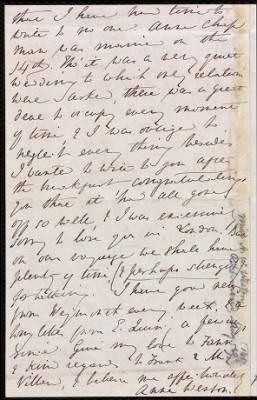 that I have had time to
write to no one. Anne Chap
man was married on the
14th. Tho' it was a very quiet
wedding to which only relations
were asked, there was a great
deal to occupy every moment
of time & I was obliged to
neglect every thing besides.
I wanted to write to you after
the breakfast congratulating
you that it had all gone
off so well, & I was exceedingly
sorry to lose you in London. But
on our voyage we shall have
plenty of time (& perhaps strength)
for talking. I have good news
from Weymouth every week, & a
long letter from E. a few days
since. Give my love to Fanny
& kind regards to Frank & Mr
& believe me affectionately
Anne Weston.